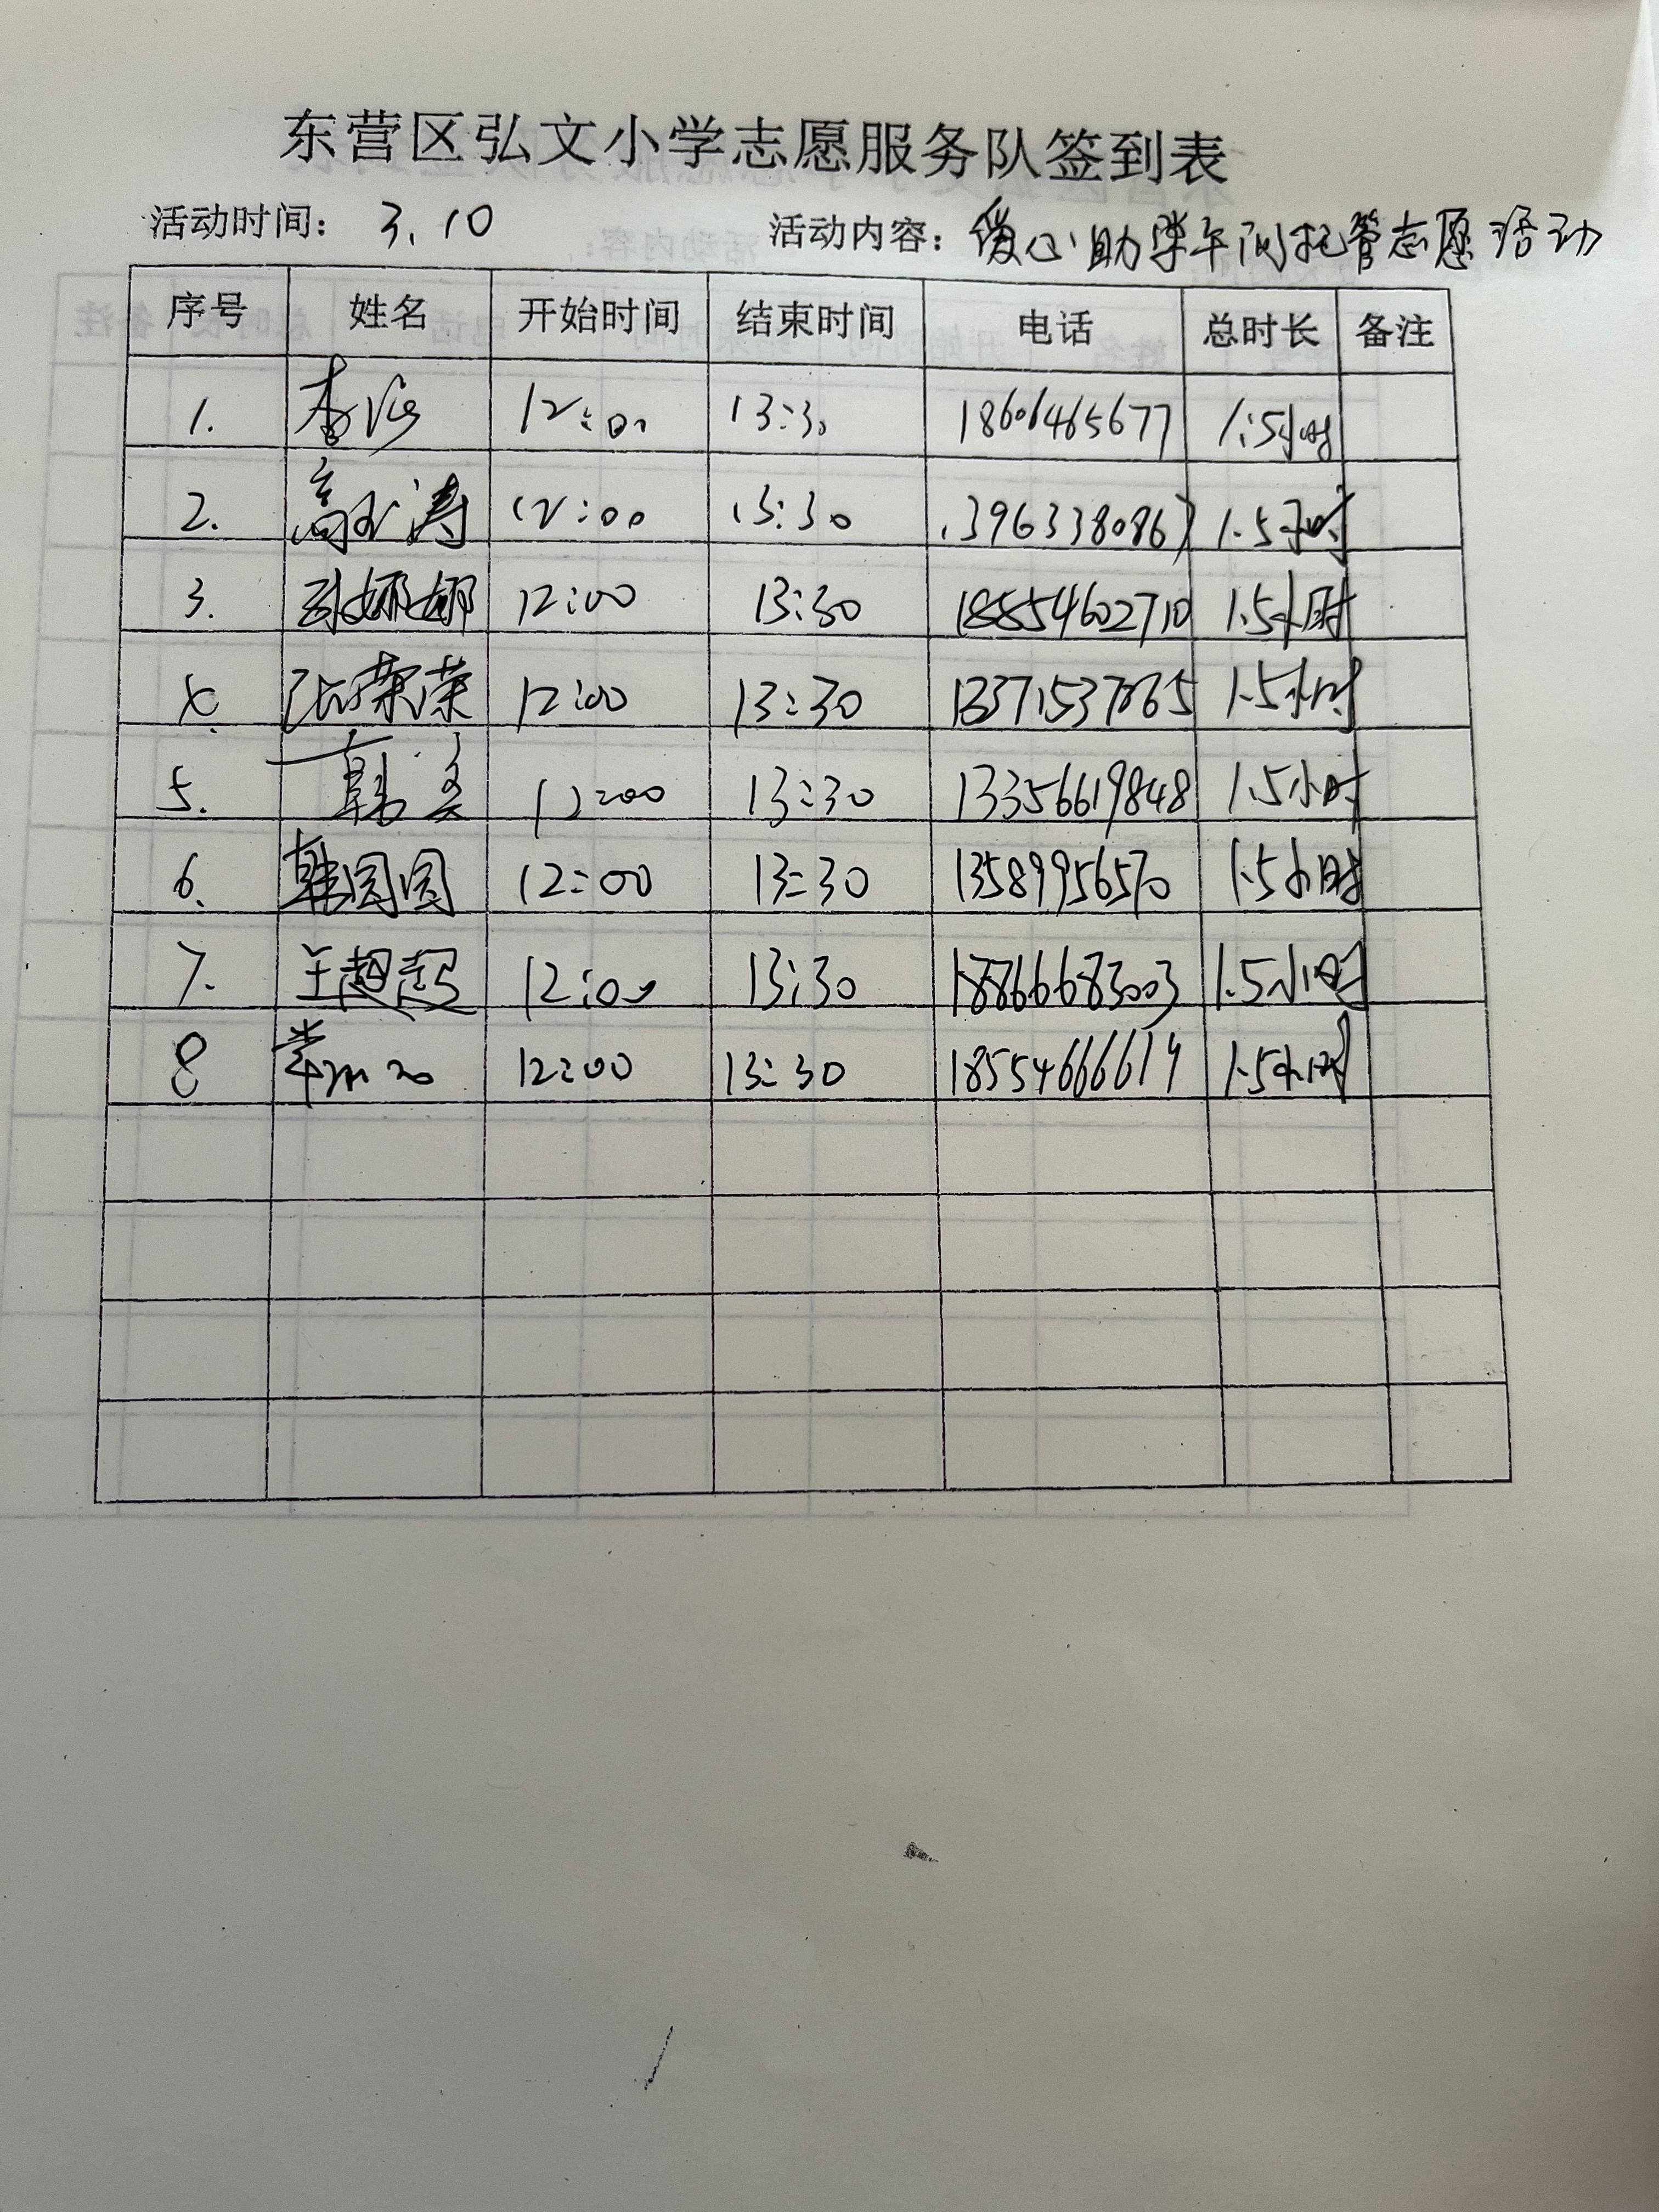 东营区弘文小学志愿服务队签到表
活动时间: 3.10 活动内容: 爱心助学午间托管志愿活动
序号 姓名 开始时间 结束时间 电话 总时长 备注
1. 12:00 13:30 18606465677 1.5小时
2. 高 涛 12:00 13:30 13963380867 1.5小时
3. 娜娜 12:00 13:30 18554602710 1.5小时
4. 张荣荣 12:00 13:30 1.5小时
5. 韩 12:00 13:30 13356619848 1.5小时
6. 韩圆圆 12:00 13:30 13589956570 1.5小时
7. 王超超 12:00 13:30 18866683003 1.5小时
8 12:00 13:30 18554666614 1.5小时